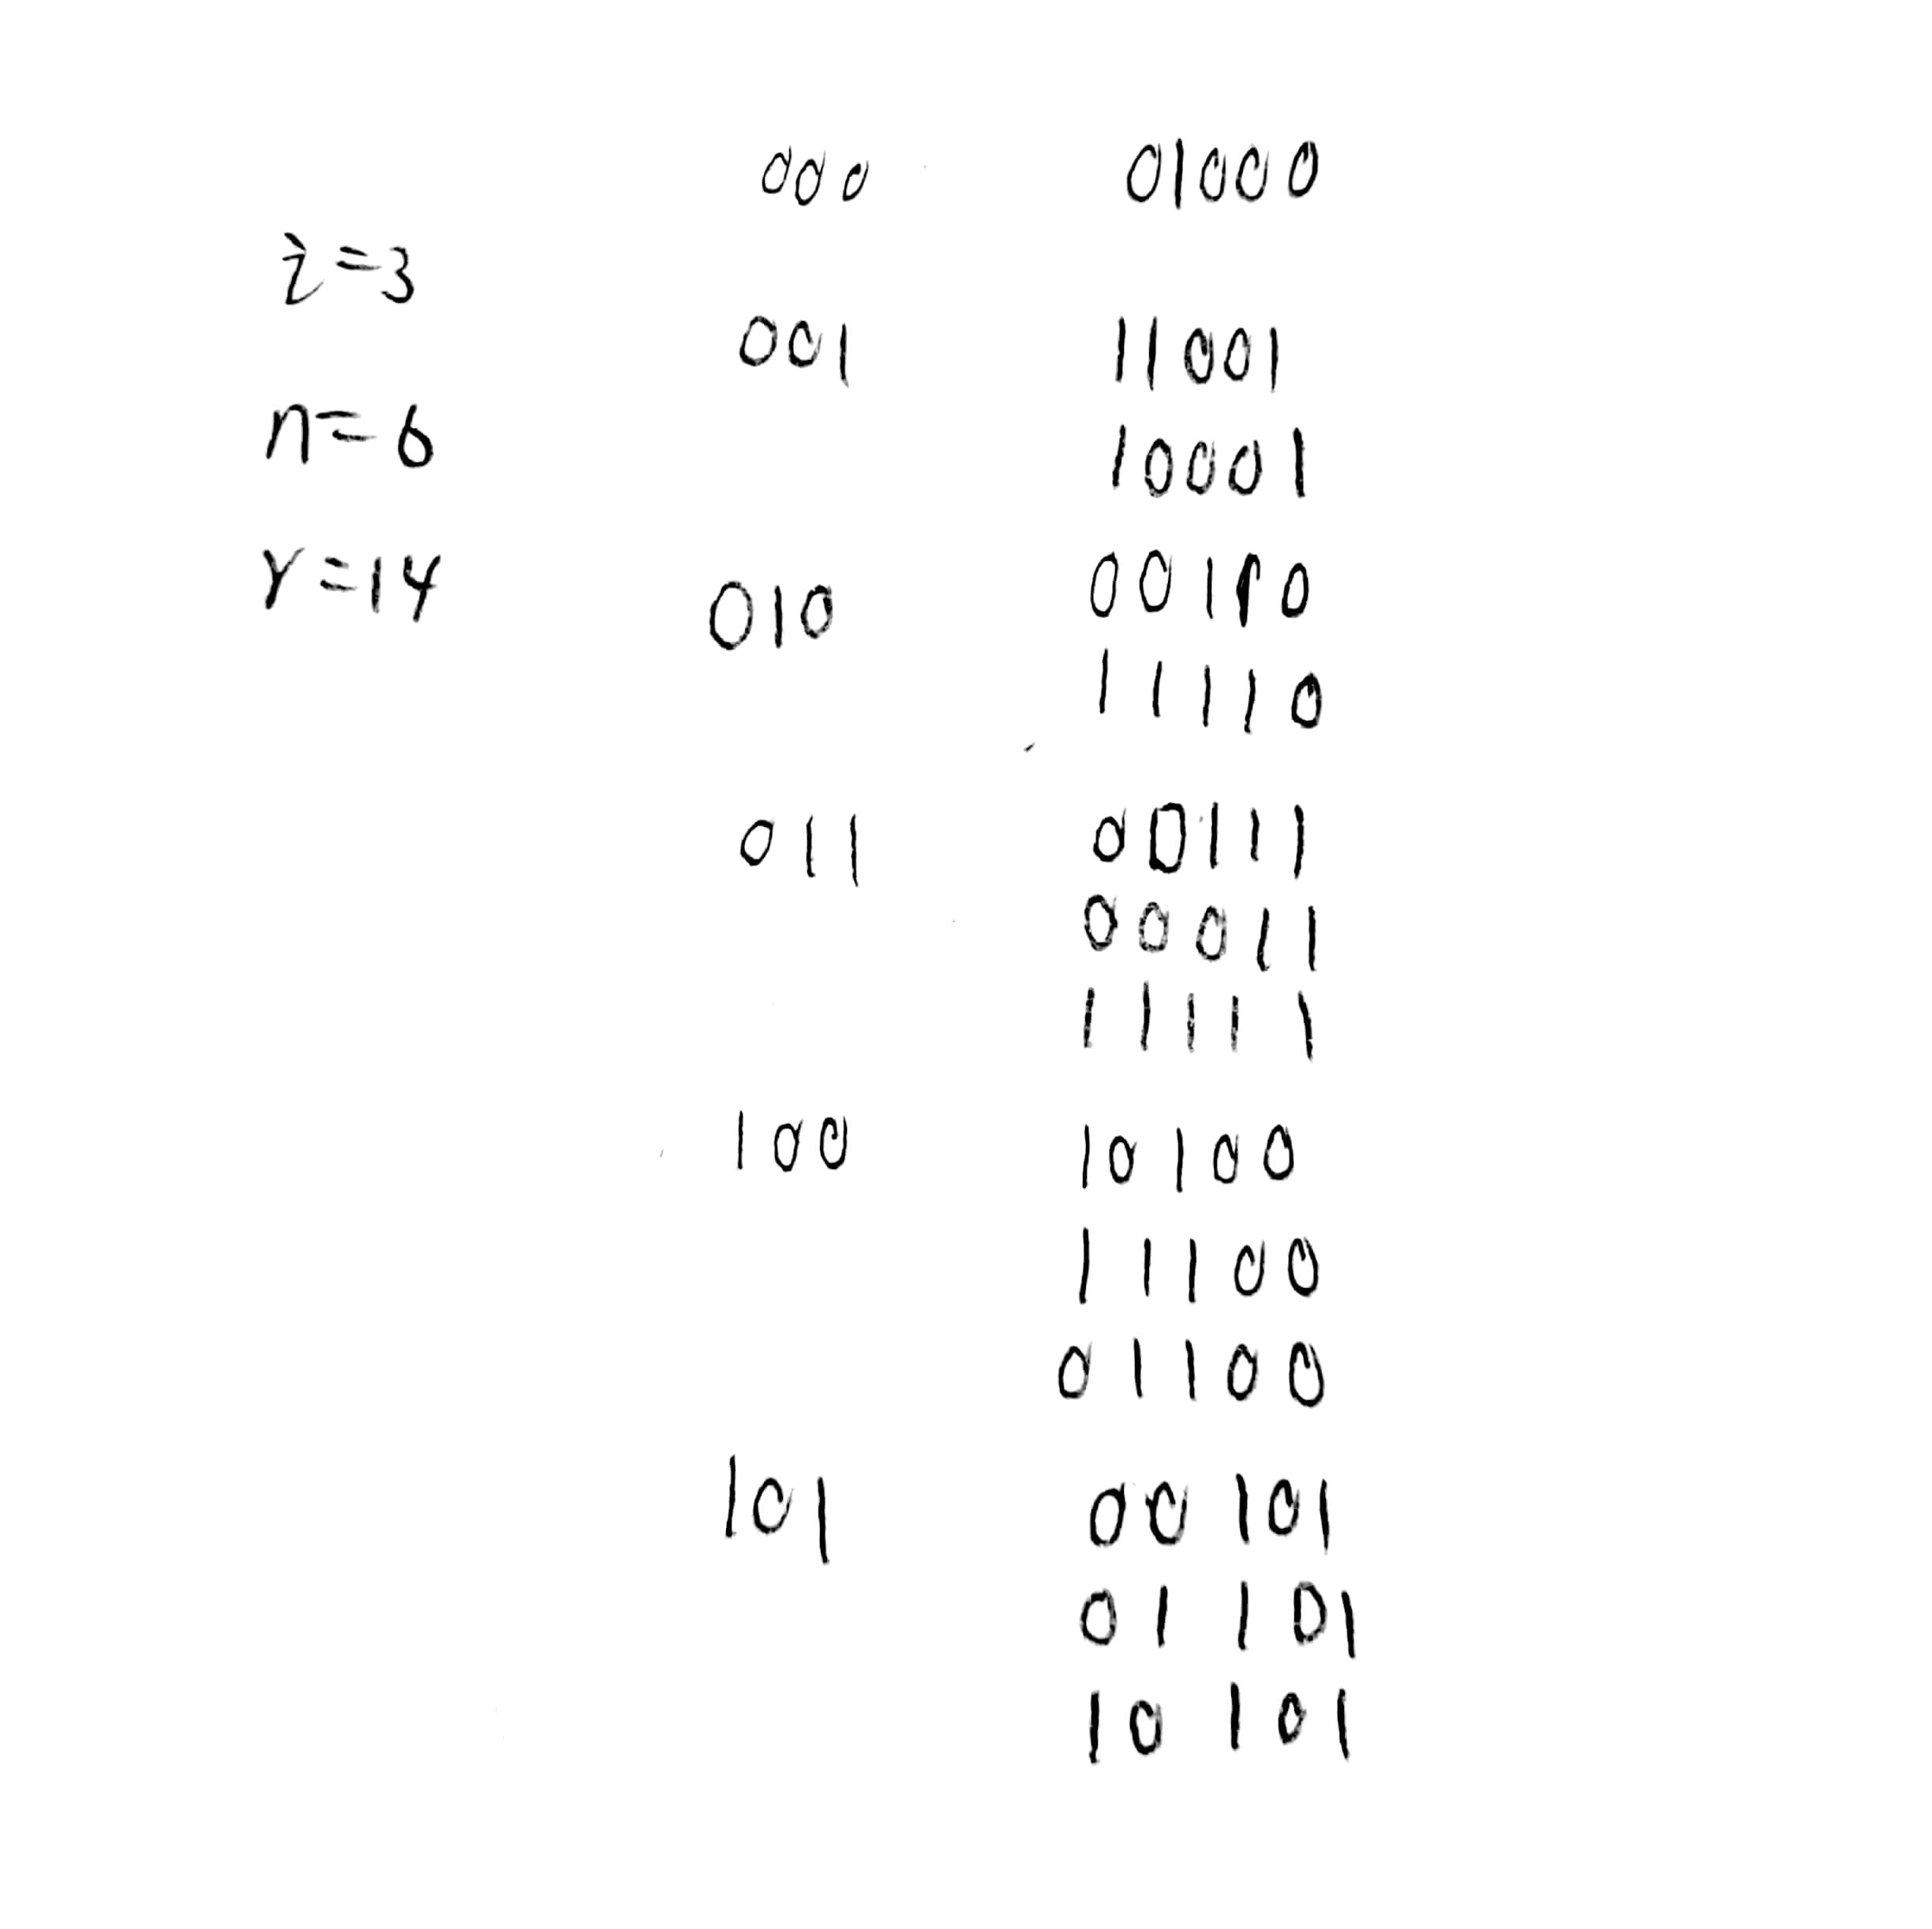 000 01000
i=3
001 11001
n=6
10001
r=14
010 00110
11110
011 00111
00011
11111
100 10100
11100
01100
101 00101
01101
10101